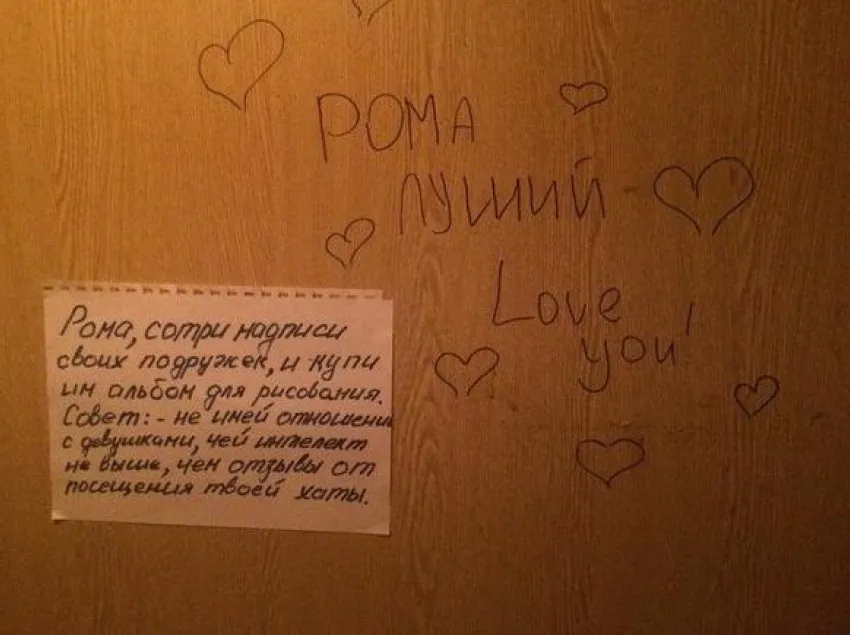 РОМА
ЛУШИЙ
Love
you!
Рома, сотри надписи
своих подружек, и купи
им альбом для рисования.
Совет: - не имей отношений
с девушками, чей интелект
не выше, чем отзывы от
посещения твоей хаты.